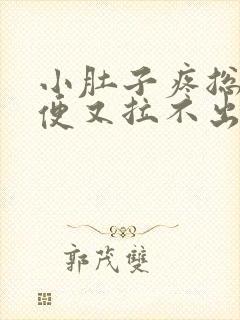 小肚子疼总
便又拉不出
郭茂双